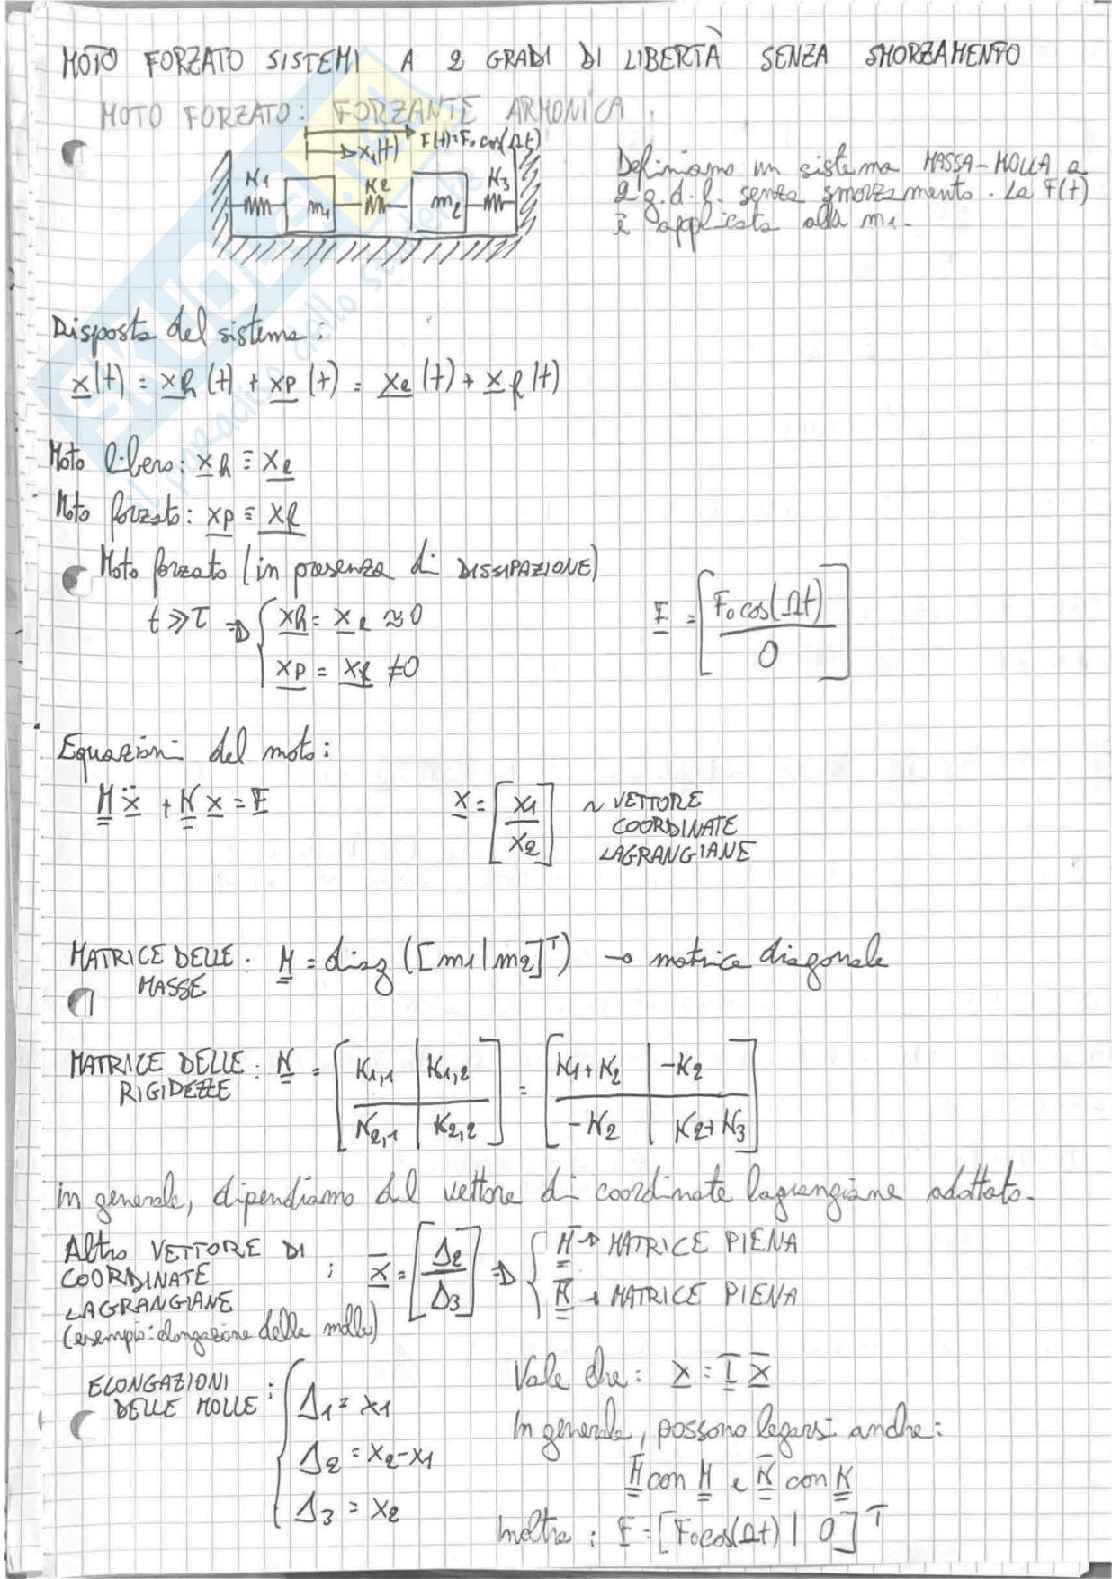 MOTO FORZATO SISTEMI A 2 GRADI DI LIBERTÀ SENZA SMORZAMENTO
MOTO FORZATO: FORZANTE ARMONICA.
x1(t) F(t)=F0 cos(Ωt)
K1 K2 K3
m1 m2
Definiamo un sistema MASSA-MOLLA a
2 g.d.l. senza smorzamento. La F(t)
è applicata alla m1.
Risposta del sistema:
x(t) = xh(t) + xp(t) = xl(t) + xf(t)
Moto libero: xh ≡ xl
Moto forzato: xp ≡ xf
Moto forzato (in presenza di DISSIPAZIONE)
t≫τ ⇒ { xh = xl ≈ 0
xp = xf ≠ 0
F = [F0 cos(Ωt) / 0]
Equazioni del moto:
M ẍ + K x = F
x = [x1 / x2] ~ VETTORE
COORDINATE
LAGRANGIANE
MATRICE DELLE MASSE: M = diag([m1|m2]^T) → matrice diagonale
MATRICE DELLE RIGIDEZZE: K = [K1,1 | K1,2 / K2,1 | K2,2] = [K1+K2 | -K2 / -K2 | K2+K3]
in generale, dipendiamo dal vettore di coordinate lagrangiane adottato.
Altro VETTORE DI
COORDINATE
LAGRANGIANE
(esempio: elongazione delle molle)
; x̄ = [Δ2 / Δ3] ⇒ { M̄ → MATRICE PIENA
K̄ → MATRICE PIENA
ELONGAZIONI
DELLE MOLLE: { Δ1 = x1
Δ2 = x2-x1
Δ3 = x2
Vale che: x = T̄ x̄
In generale, possono legarsi anche:
M̄ con M e K̄ con K
Inoltre: F = [F0 cos(Ωt) | 0]^T
SKUOLA